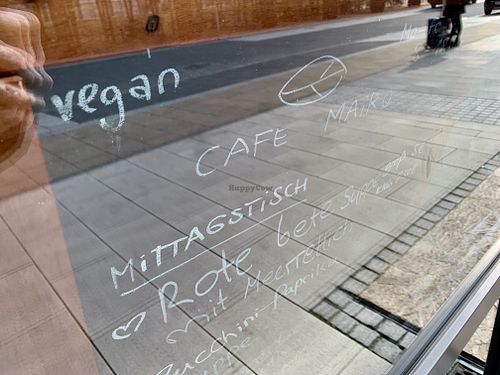 vegan
CAFE MAiKO
MiTTAGSTiSCH
Rote bete Suppe
mit Meerrettich
Zucchini-Paprika
HappyCow